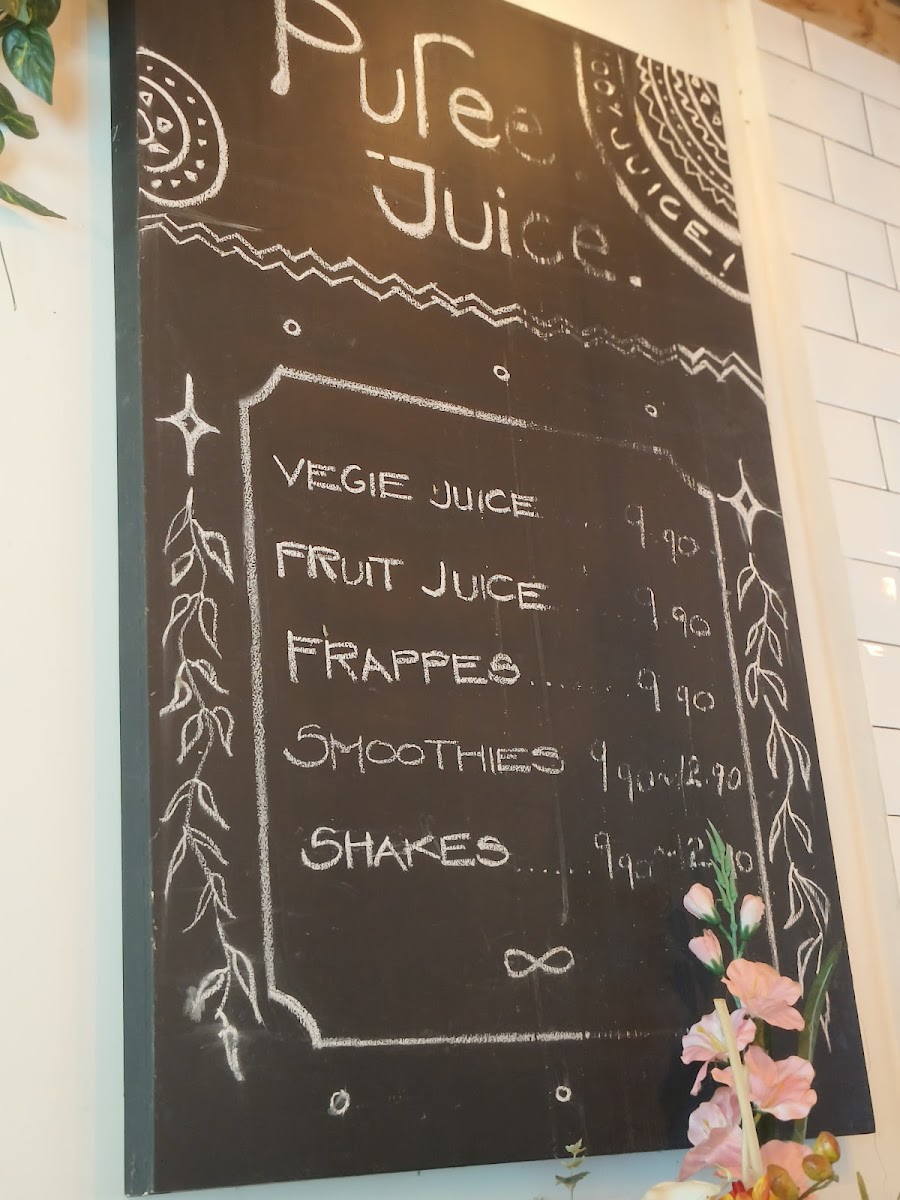 Puree
Juice.
JUICE!
VEGIE JUICE ..... 9.90
FRUIT JUICE ..... 9.90
FRAPPES........ 9.90
SMOOTHIES 9.90/12.90
SHAKES...... 9.90/12.90